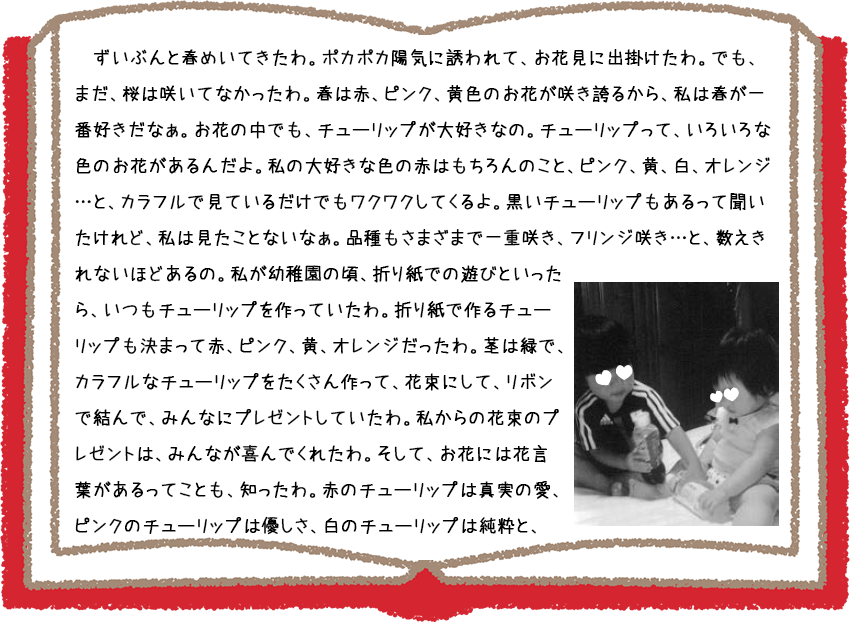 ずいぶんと春めいてきたわ。ポカポカ陽気に誘われて、お花見に出掛けたわ。でも、
まだ、桜は咲いてなかったわ。春は赤、ピンク、黄色のお花が咲き誇るから、私は春が一
番好きだなぁ。お花の中でも、チューリップが大好きなの。チューリップって、いろいろな
色のお花があるんだよ。私の大好きな色の赤はもちろんのこと、ピンク、黄、白、オレンジ
…と、カラフルで見ているだけでもワクワクしてくるよ。黒いチューリップもあるって聞い
たけれど、私は見たことないなぁ。品種もさまざまで一重咲き、フリンジ咲き…と、数えき
れないほどあるの。私が幼稚園の頃、折り紙での遊びといった
ら、いつもチューリップを作っていたわ。折り紙で作るチュー
リップも決まって赤、ピンク、黄、オレンジだったわ。茎は緑で、
カラフルなチューリップをたくさん作って、花束にして、リボン
で結んで、みんなにプレゼントしていたわ。私からの花束のプ
レゼントは、みんなが喜んでくれたわ。そして、お花には花言
葉があるってことも、知ったわ。赤のチューリップは真実の愛、
ピンクのチューリップは優しさ、白のチューリップは純粋と、